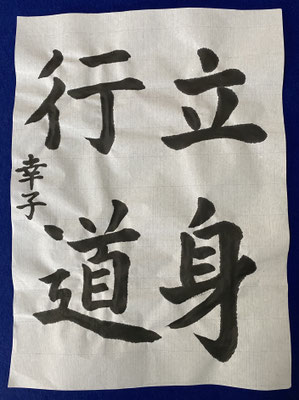 立身
行道
幸子